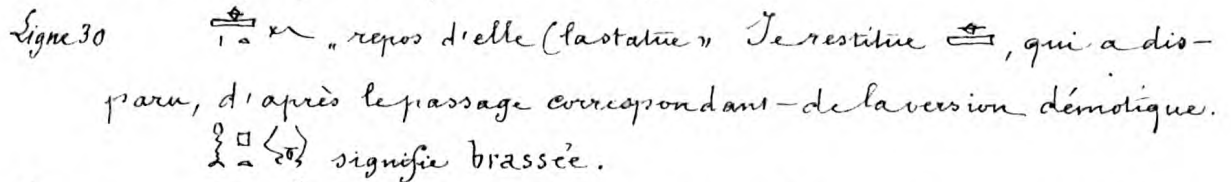 Ligne 30 „ repos d'elle (la statue” Je restitue , qui a dis-
paru, d'après le passage correspondant de la version démotique.
signifie brassée.